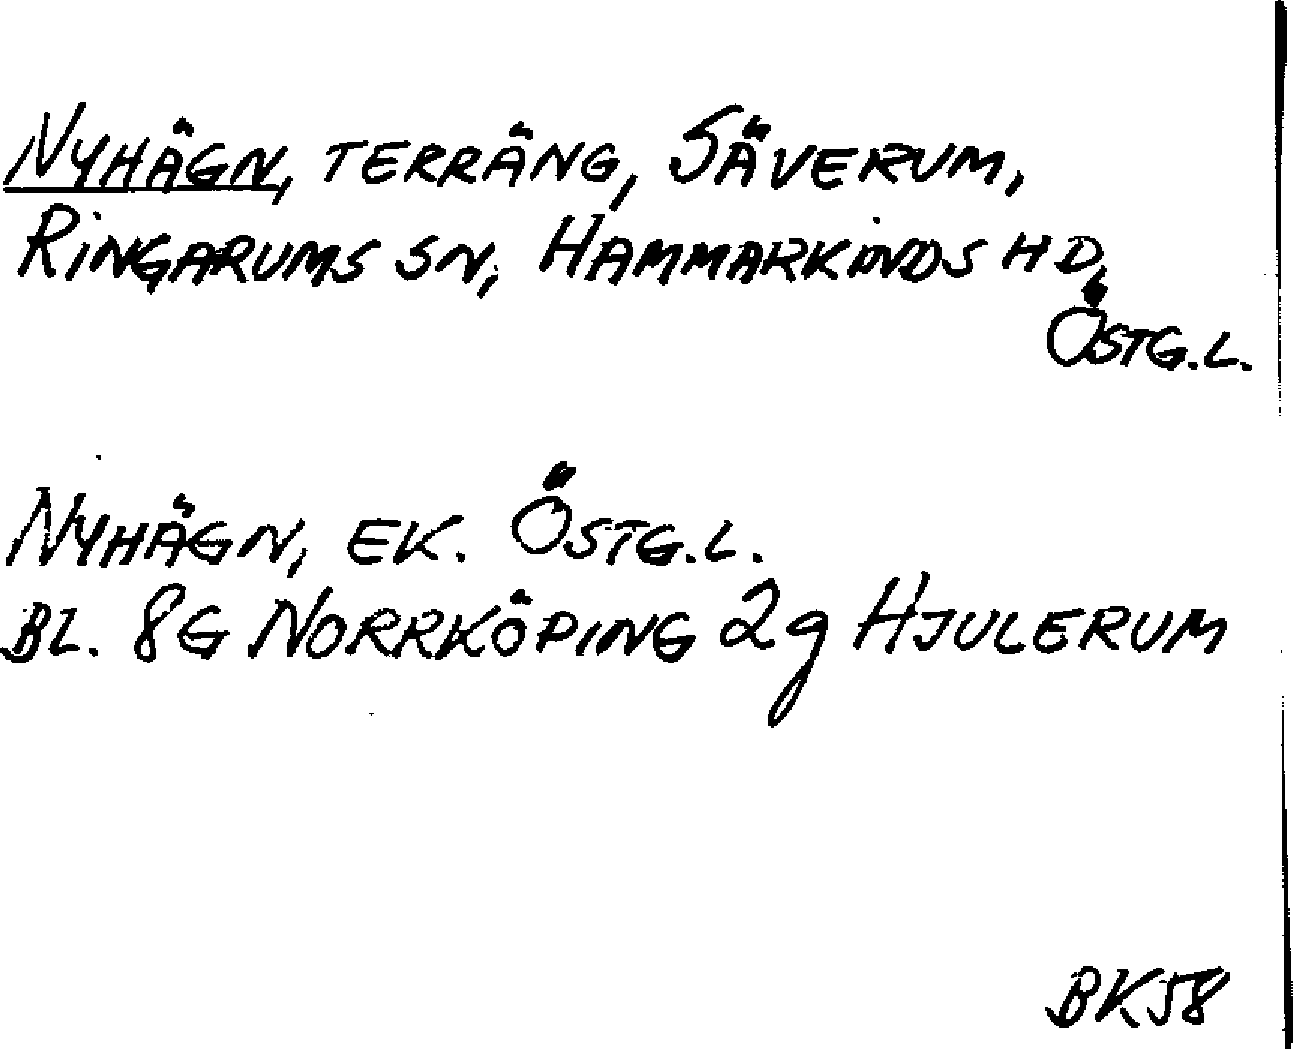 NYHÄGN, TERRÄNG, SÄVERUM,
RINGARUMS SN, HAMMARKINDS HD,
ÖSTG.L.
NYHÄGN, EK. ÖSTG.L.
BL. 8G NORRKÖPING 2g HJULERUM
BK58